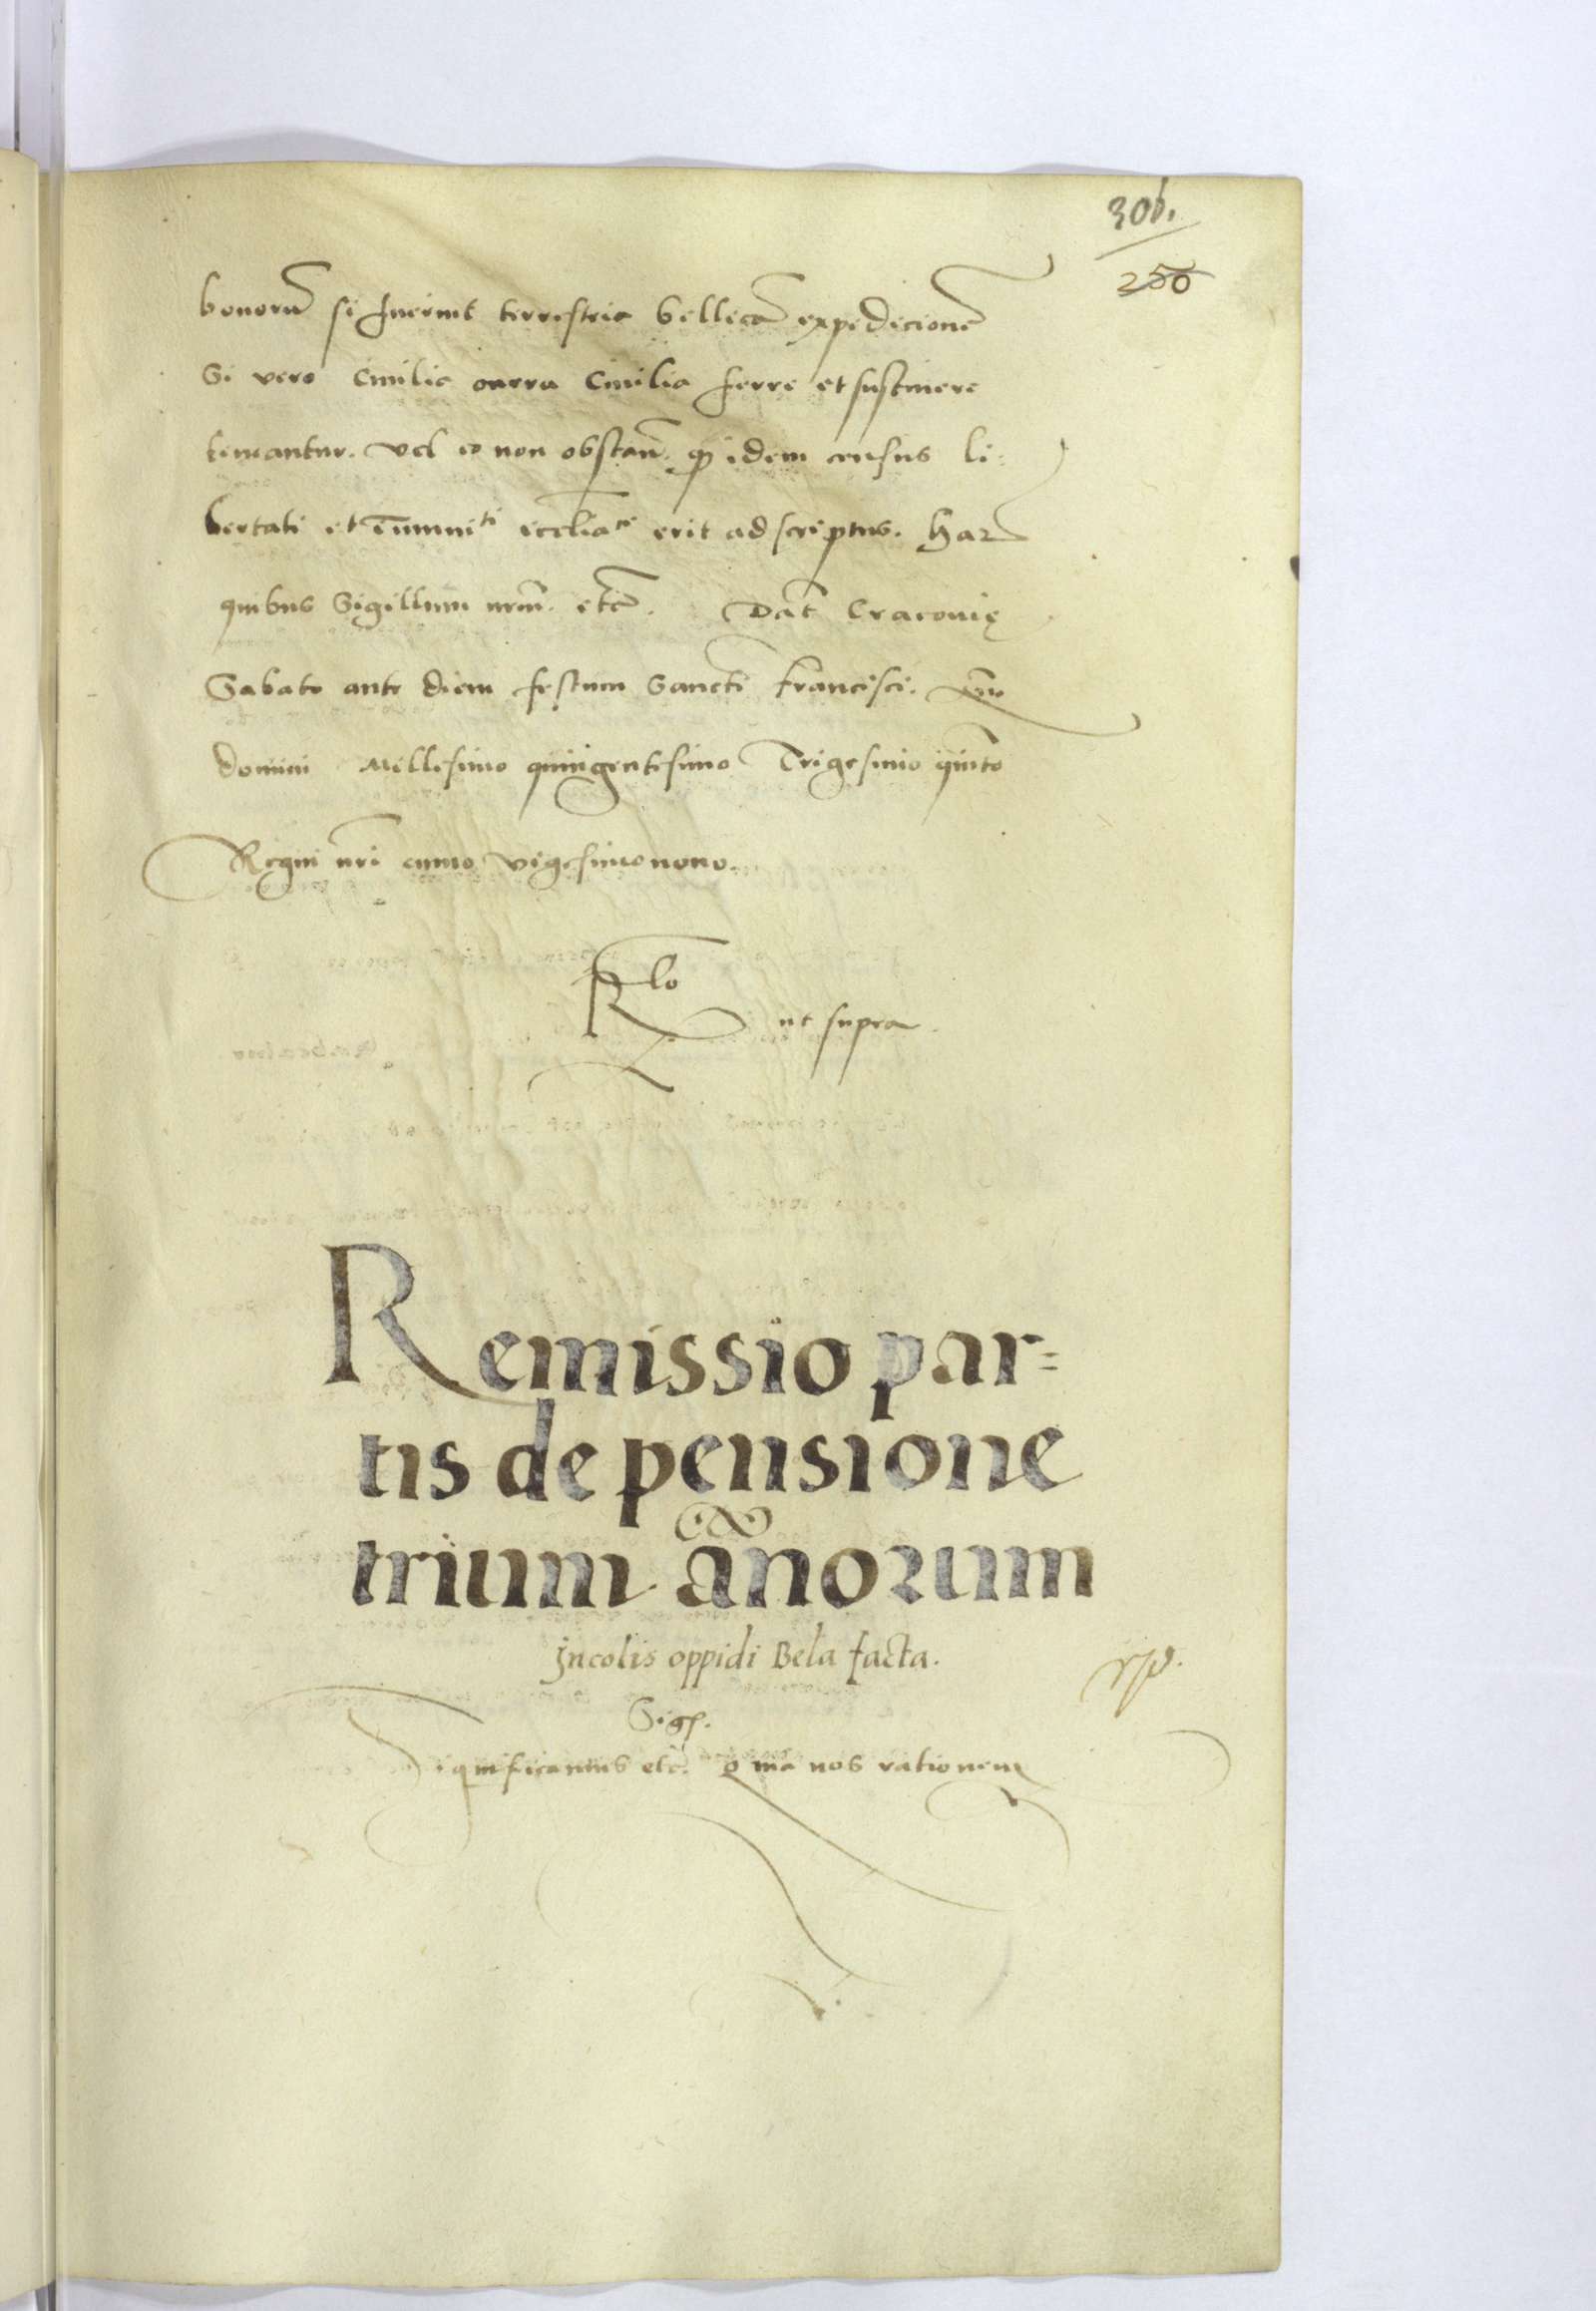 301.
250
bonorũ si fuerint terrestria bellicã expedicionẽ
Si vero Civilia onera Civilia ferre et sustinere
teneantur. vel eo non obstan̄. qp idem census li:
bertati et ĩmuniti ecclīaci erit ad scriptus. Har
quibus Sigillum nr̄m. etc̃. Dat̃ Cracovię
Sabato ante diem festum Sancti Francisci. Ann̄
domini Millesimo quingentesimo Trigesimo quinto
Regni nr̄i anno vigesimonono.
Rlo
ut supra.
Remissio par=
tis de pensione
trium ãnorum
Jncolis oppidi Bela facta.
Sigs.
Significamus etc̃. nos rationem